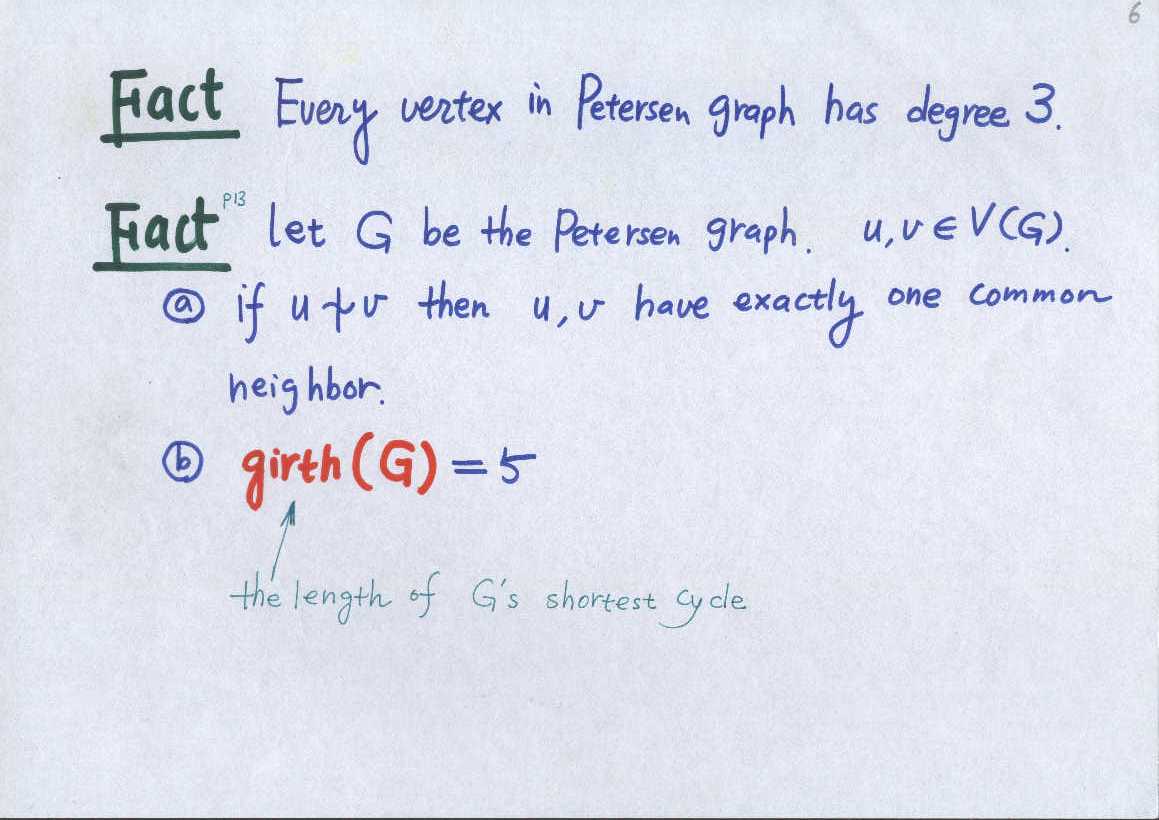 6
Fact Every vertex in Petersen graph has degree 3.
Fact P13 let G be the Petersen graph. u, v ∈ V(G).
ⓐ if u ≁ v then u, v have exactly one common
neighbor.
ⓑ girth(G) = 5
the length of G's shortest cycle